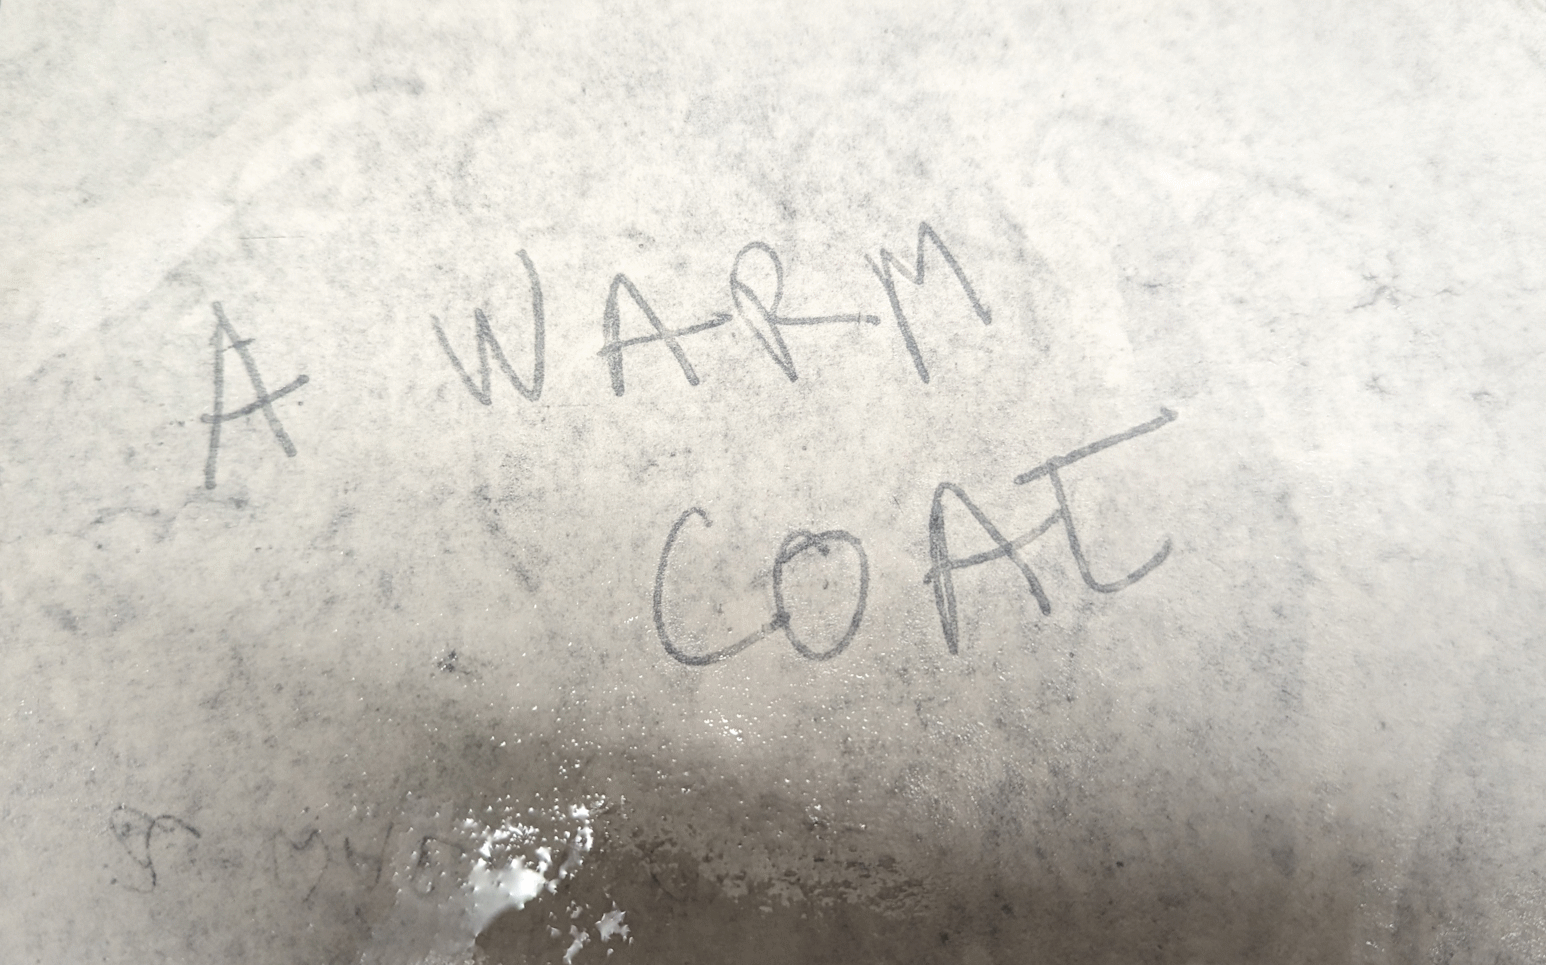 A WARM
COAT